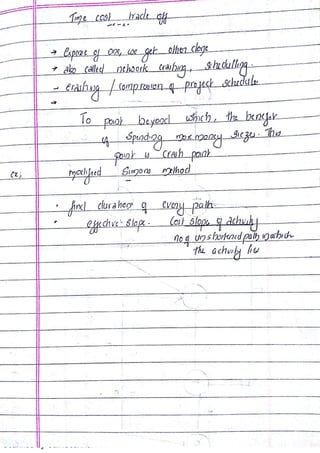 Time cost trade off
→ Expense of one, we get other done
→ also called network crashing, scheduling.
- crashing / compression of project schedule
To point beyond which, the benefit
of spending more money . This
point is crash point
modified Simons method
• find duration of every path.
• effective slope - cost slope of activity
no of unshortened path in which
the activity lies